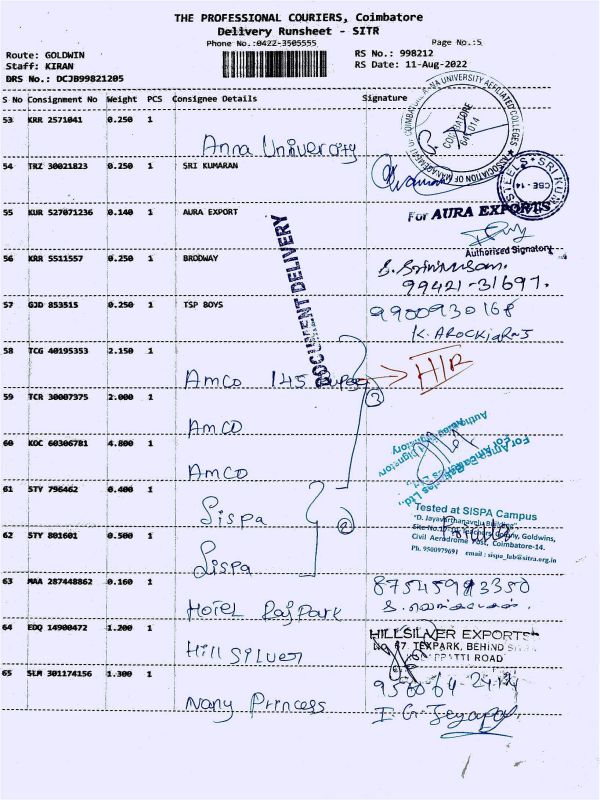 THE PROFESSIONAL COURIERS, Coimbatore
Delivery Runsheet - SITR
Phone No.:0422-3505555
Page No.:5
Route: GOLDWIN
Staff: KIRAN
DRS No.: DCJB99821205
RS No.: 998212
RS Date: 11-Aug-2022
S No Consignment No Weight PCS Consignee Details Signature
53 KRR 2571041 0.250 1
Anna University
COIMBATORE
641 014
54 TRZ 30021823 0.250 1 SRI KUMARAN
CBE - 14
55 KUR 527071236 0.140 1 AURA EXPORT
For AURA EXPORTS
Authorised Signatory
DOCUMENT DELIVERY
56 KRR 5511557 0.250 1 BRODWAY
S. Srinivasan.
99421-31697.
57 GJD 853515 0.250 1 TSP BOYS
9900930168
58 TCG 40195353 2.150 1
Amco 145
H/R
3
59 TCR 30007375 2.000 1
Amco
60 KOC 60306781 4.800 1
Amco
61 STY 796462 0.400 1
Sispa
2
Tested at SISPA Campus
"D. Jayavarthanavelu Building"
Civil Aerodrome Post, Coimbatore-14.
Ph. 9500979691 email : sispa_lab@sitra.org.in
62 STY 801601 0.500 1
Sispa
63 MAA 287448862 0.160 1
Hotel Rajpark
64 EDQ 14900472 1.200 1
Hill Silver
HILLSILVER EXPORTS
NO. 67, TEXPARK, BEHIND
ROAD
65 SLM 301174156 1.300 1
Nany Princess